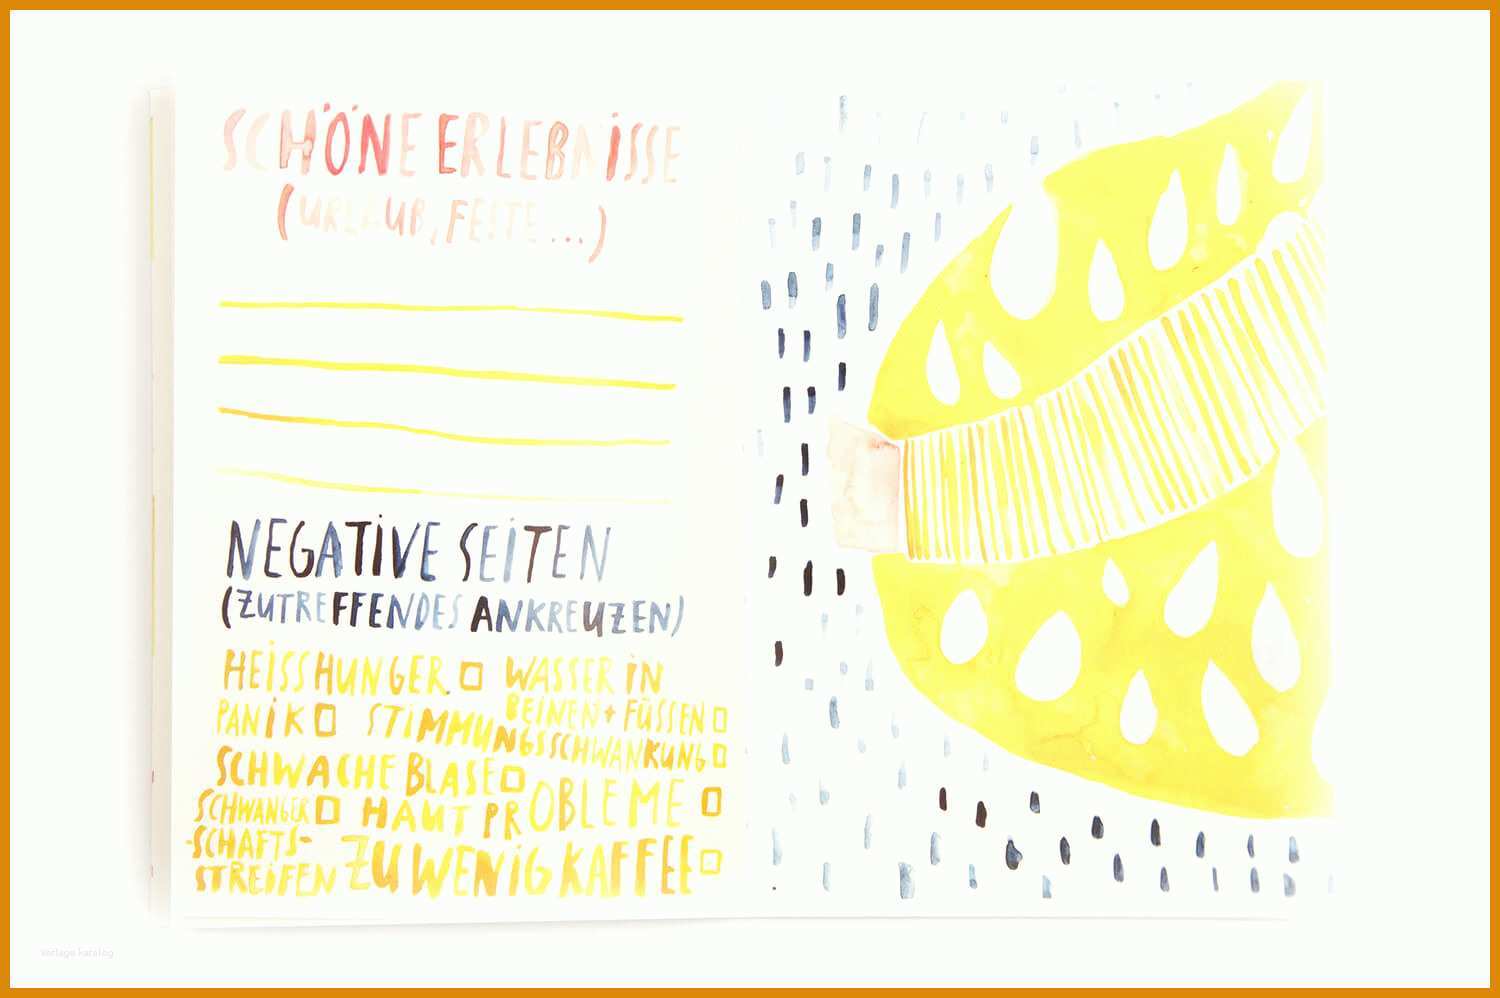 SCHÖNE ERLEBNISSE
(URLAUB, FESTE...)
NEGATIVE SEITEN
(ZUTREFFENDES ANKREUZEN)
HEISSHUNGER WASSER IN
BEINEN + FÜSSEN
PANIK STIMMUNGSSCHWANKUNG
SCHWACHE BLASE
SCHWANGER HAUTPROBLEME
-SCHAFTS-
STREIFEN ZU WENIG KAFFEE
vorlage katalog